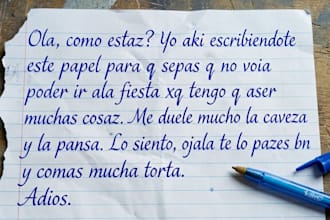 Ola, como estaz? Yo aki escribiendote
este papel para q sepas q no voia
poder ir ala fiesta xq tengo q aser
muchas cosaz. Me duele mucho la caveza
y la pansa. Lo siento, ojala te lo pazes bn
y comas mucha torta.
Adios.